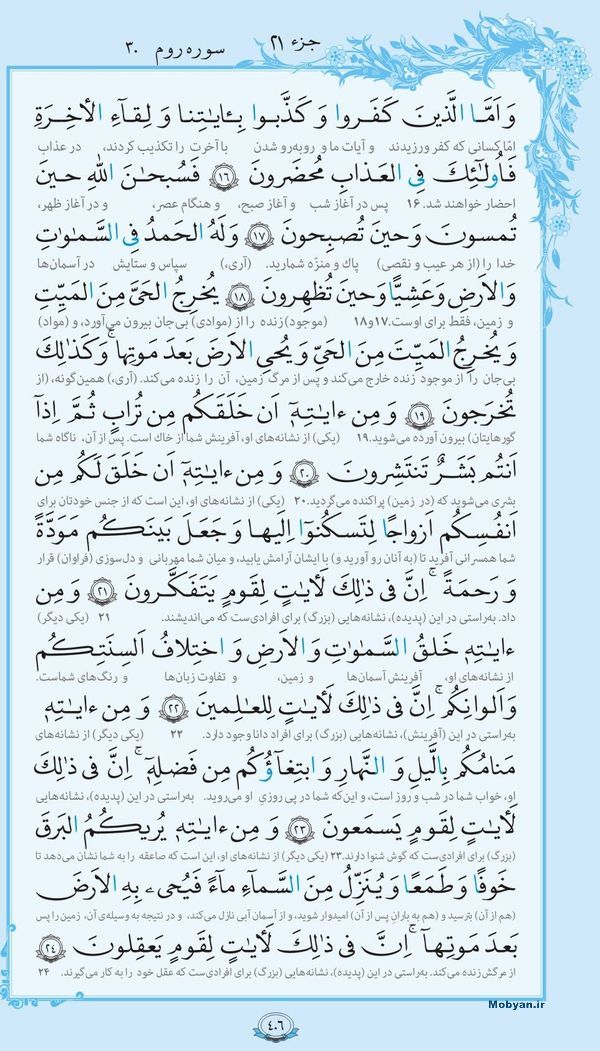 جزء ۲۱
سوره روم ۳۰
وَ اَمَّا الَّذینَ کَفَروا وَ کَذَّبوا بِـٔایٰتِنا وَ لِقآءِ الأخِرَةِ
امّا کسانی که کفر ورزیدند و آیات ما و روبه‌رو شدن با آخرت را تکذیب کردند، در عذاب
فَاُولٰئِکَ فِی العَذابِ مُحضَرونَ ۱۶ فَسُبحٰنَ اللهِ حینَ
احضار خواهند شد. ۱۶ پس در آغاز شب و آغاز صبح، و هنگام عصر، و در آغاز ظهر،
تُمسونَ وَ حینَ تُصبِحونَ ۱۷ وَ لَهُ الحَمدُ فِی السَّمٰوٰتِ
خدا را (از هر عیب و نقصی) پاك و منزّه شمارید. (آری،) سپاس و ستایش در آسمان‌ها
وَ الاَرضِ وَ عَشِیًّا وَ حینَ تُظهِرونَ ۱۸ یُخرِجُ الحَیَّ مِنَ المَیِّتِ
و زمین، فقط برای اوست. ۱۷و۱۸ (موجود) زنده را از (موادی) بی‌جان بیرون می‌آورد، و (مواد)
وَ یُخرِجُ المَیِّتَ مِنَ الحَیِّ وَ یُحیِ الاَرضَ بَعدَ مَوتِها ۚ وَ کَذٰلِكَ
بی‌جان را از موجود زنده خارج می‌کند و پس از مرگ زمین، آن را زنده می‌کند. (آری،) همین‌گونه، (از
تُخرَجونَ ۱۹ وَ مِن ءایٰتِهٖٓ اَن خَلَقَکُم مِن تُرابٍ ثُمَّ اِذآ
گورهایتان) بیرون آورده می‌شوید. ۱۹ (یکی) از نشانه‌های او، آفرینش شما از خاك است. پس از آن، ناگاه شما
اَنتُم بَشَرٌ تَنتَشِرونَ ۲۰ وَ مِن ءایٰتِهٖٓ اَن خَلَقَ لَکُم مِن
بشری می‌شوید که (در زمین) پراکنده می‌گردید. ۲۰ (یکی) از نشانه‌های او، این است که از جنس خودتان برای
اَنفُسِکُم اَزواجًا لِتَسکُنوٓا اِلَیها وَ جَعَلَ بَینَکُم مَوَدَّةً
شما همسرانی آفرید تا (به آنان رو آورید و) با ایشان آرامش یابید، و میان شما مهربانی و دل‌سوزی (فراوان) قرار
وَ رَحمَةً ۚ اِنَّ فی ذٰلِكَ لَأیٰتٍ لِقَومٍ یَتَفَکَّرونَ ۲۱ وَ مِن
داد. به‌راستی در این (پدیده)، نشانه‌هایی (بزرگ) برای افرادی‌ست که می‌اندیشند. ۲۱ (یکی دیگر)
ءایٰتِهٖ خَلقُ السَّمٰوٰتِ وَ الاَرضِ وَ اختِلافُ اَلسِنَتِکُم
از نشانه‌های او، آفرینش آسمان‌ها و زمین، و تفاوت زبان‌ها و رنگ‌های شماست.
وَ اَلوانِکُم ۚ اِنَّ فی ذٰلِكَ لَأیٰتٍ لِلعٰلِمینَ ۲۲ وَ مِن ءایٰتِهٖ
به‌راستی در این (آفرینش)، نشانه‌هایی (بزرگ) برای افراد دانا وجود دارد. ۲۲ (یکی دیگر) از نشانه‌های
مَنامُکُم بِالَّیلِ وَ النَّهارِ وَ ابتِغآؤُکُم مِن فَضلِهٖٓ ۚ اِنَّ فی ذٰلِكَ
او، خواب شما در شب و روز است، و این‌که شما در پی روزیِ او می‌روید. به‌راستی در این (پدیده)، نشانه‌هایی
لَأیٰتٍ لِقَومٍ یَسمَعونَ ۲۳ وَ مِن ءایٰتِهٖ یُریکُمُ البَرقَ
(بزرگ) برای افرادی‌ست که گوش شنوا دارند. ۲۳ (یکی دیگر) از نشانه‌های او، این است که صاعقه را به شما نشان می‌دهد تا
خَوفًا وَ طَمَعًا وَ یُنَزِّلُ مِنَ السَّمآءِ مآءً فَیُحیٖ بِهِ الاَرضَ
(هم از آن) بترسید و (هم به باران پس از آن) امیدوار شوید، و از آسمان آبی نازل می‌کند، و در نتیجه به وسیله‌ی آن، زمین را پس
بَعدَ مَوتِهآ ۚ اِنَّ فی ذٰلِكَ لَأیٰتٍ لِقَومٍ یَعقِلونَ ۲۴
از مرگش زنده می‌کند. به‌راستی در این (پدیده)، نشانه‌هایی (بزرگ) برای افرادی‌ست که عقل خود را به کار می‌گیرند. ۲۴
Mobyan.ir
۴۰۶